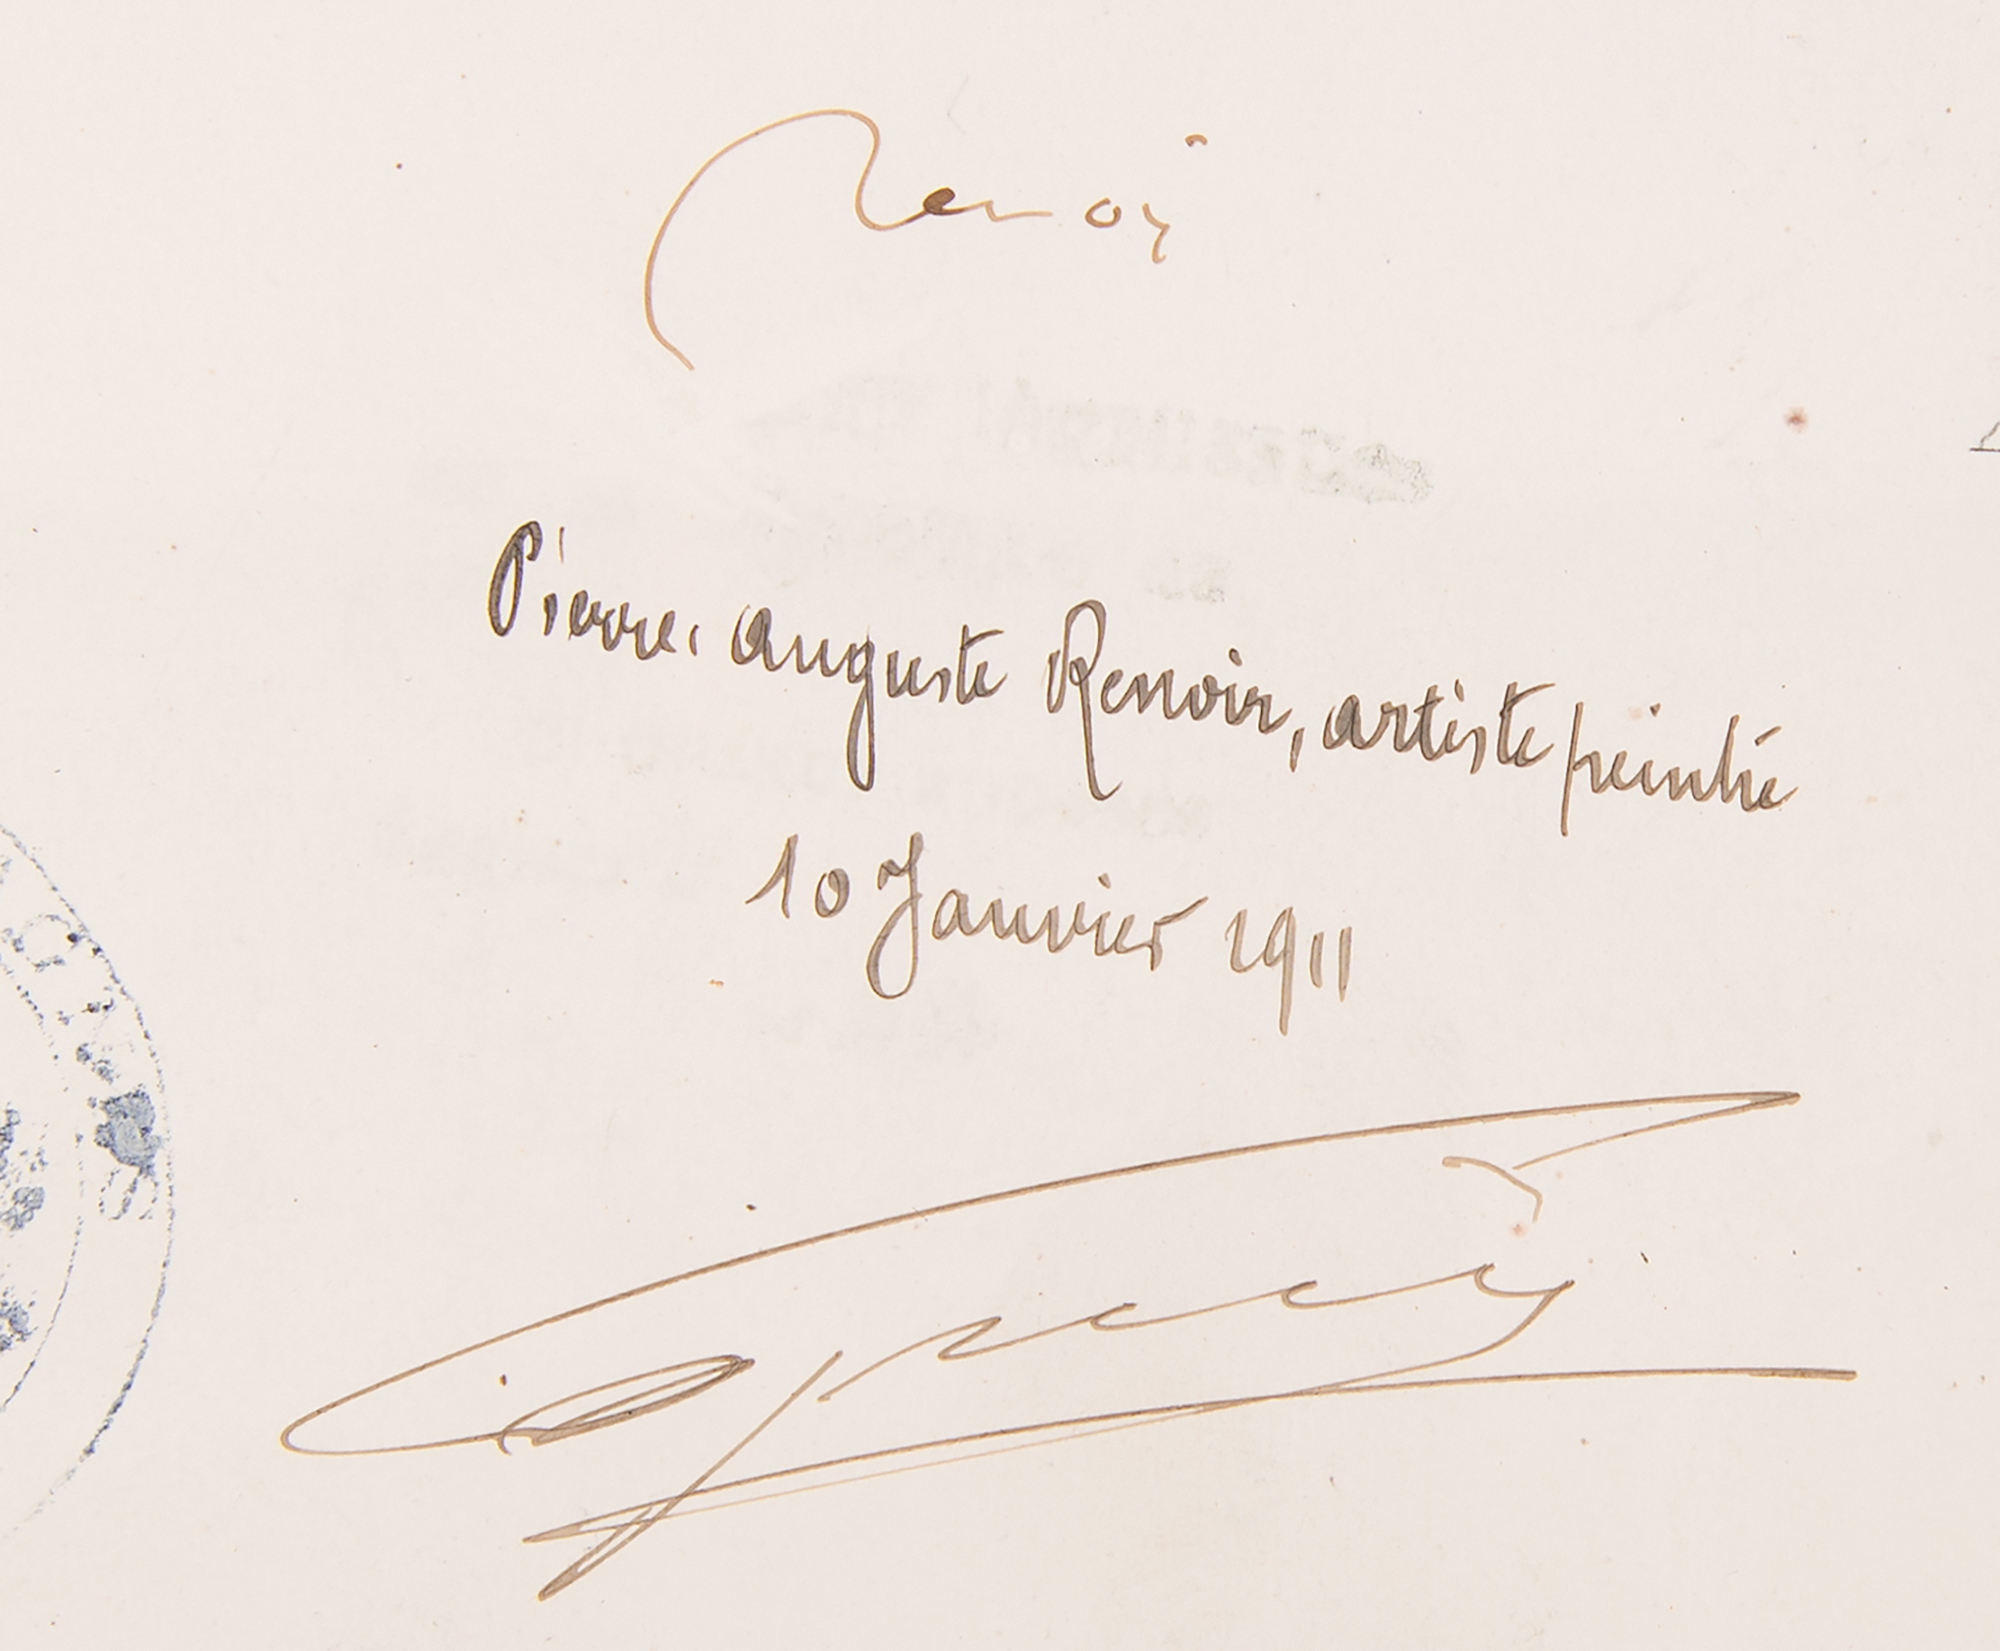 Renoir
Pierre Auguste Renoir, artiste peintre
10 Janvier 1911